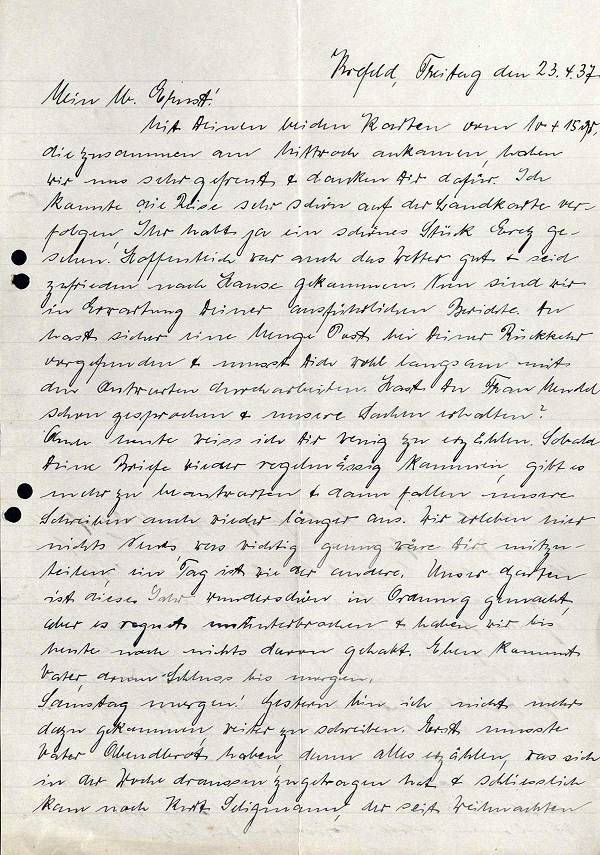 Krefeld, Freitag den 23.4.37
Mein lb. Ernst!
Mit Deinen beiden Karten vom 10 + 15 ds,
die zusammen am Mittwoch ankamen, haben
wir uns sehr gefreut & danken Dir dafür. Ich
konnte die Reise sehr schön auf der Landkarte ver-
folgen, Ihr habt ja ein schönes Stück Erez ge-
sehen. Hoffentlich war auch das Wetter gut & seid
zufrieden nach Hause gekommen. Nun sind wir
in Erwartung Deiner ausführlichen Berichte. Du
hast sicher eine Menge Post bei Deiner Rückkehr
vorgefunden & musst Dich wohl langsam mit
den Antworten durcharbeiten. Hast Du Frau Mendel
schon gesprochen & unsere Sachen erhalten?
Auch heute weiss ich Dir wenig zu erzählen. Sobald
Deine Briefe wieder regelmässig kommen, gibt es
mehr zu beantworten & dann fallen unsere
Schreiben auch wieder länger aus. Wir erleben hier
nichts Neues, was wichtig genug wäre Dir mitzu-
teilen, ein Tag ist wie der andere. Unser Garten
ist dieses Jahr wunderschön in Ordnung gemacht,
aber es regnet ununterbrochen & haben wir bis
heute noch nichts davon gehabt. Eben kommt
Vater, drum Schluss bis morgen.
Samstag morgen! Gestern bin ich nicht mehr
dazu gekommen weiter zu schreiben. Erst musste
Vater Abendbrot haben, dann alles erzählen, was sich
in der Woche draussen zugetragen hat & schliesslich
kam noch Kurt Seligmann, der seit Weihnachten